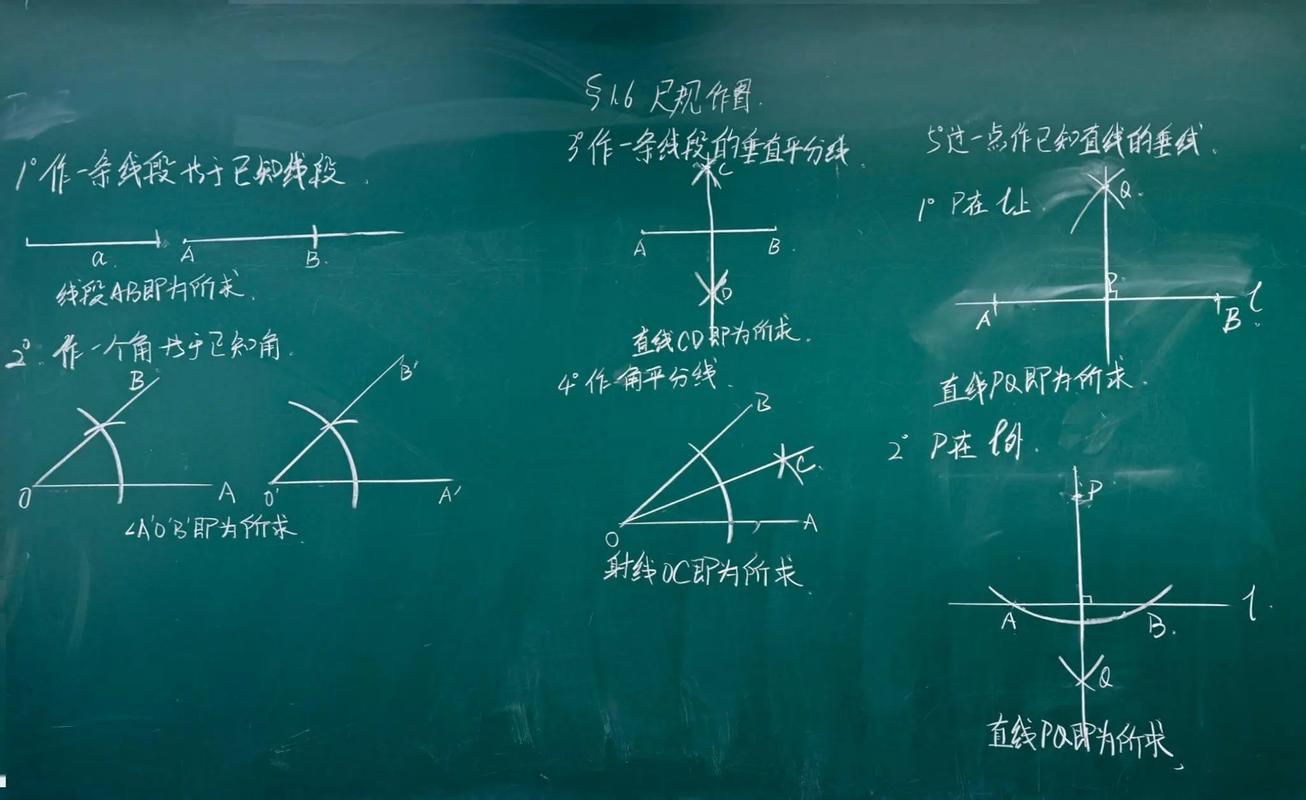 §1.6 尺规作图.
1° 作一条线段等于已知线段.
a. A B
线段AB即为所求.
2° 作一个角等于已知角.
B B'
O A O' A'
∠A'O'B'即为所求.
3° 作一条线段的垂直平分线.
C
A B
D
直线CD即为所求.
4° 作角平分线.
B
C.
O A
射线OC即为所求.
5° 过一点作已知直线的垂线.
1° P在l上. Q.
P
A B l
直线PQ即为所求.
2° P在l外.
P
A B. l.
Q
直线PQ即为所求.